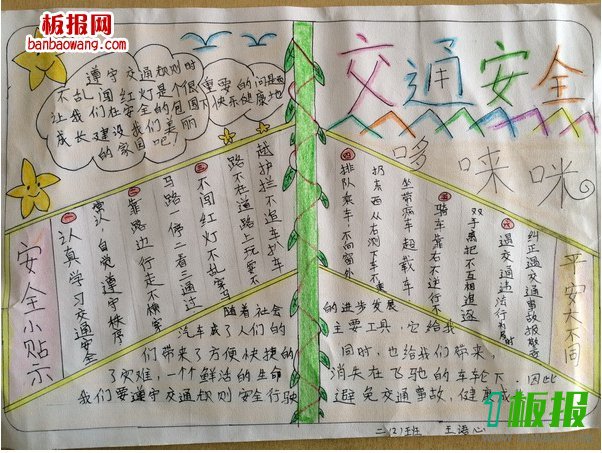 板报网
banbaowang.com
遵守交通规则时
不乱闯红灯是个很重要的问题
让我们在安全的包围下快乐健康地
成长建设我们美丽
的家园吧!
交通安全
哆咪咪
安全小贴示
一
认真学习交通安全
常识,自觉遵守秩序
二
靠路边行走不横穿
马路一停二看三通过
三
不闯红灯不乱穿马
路不在道路上玩耍不
越护拦不追车扒车
四
排队乘车不向窗外
扔东西从右侧下车不乘
坐带病车超载车
五
骑车靠右不逆行不
双手离把不互相追逐
六
遇交通违法行为及时
纠正遇交通事故报警
平安大不同
随着社会
汽车成了人们的
们带来了方便快捷的
了灾难,一个鲜活的生命
我们要遵守交通规则安全行驶
的进步发展
主要工具,它给我
同时,也给我们带来,
消失在飞驰的车轮下,因此
避免交通事故,健康
板报
二(2)班 王语心